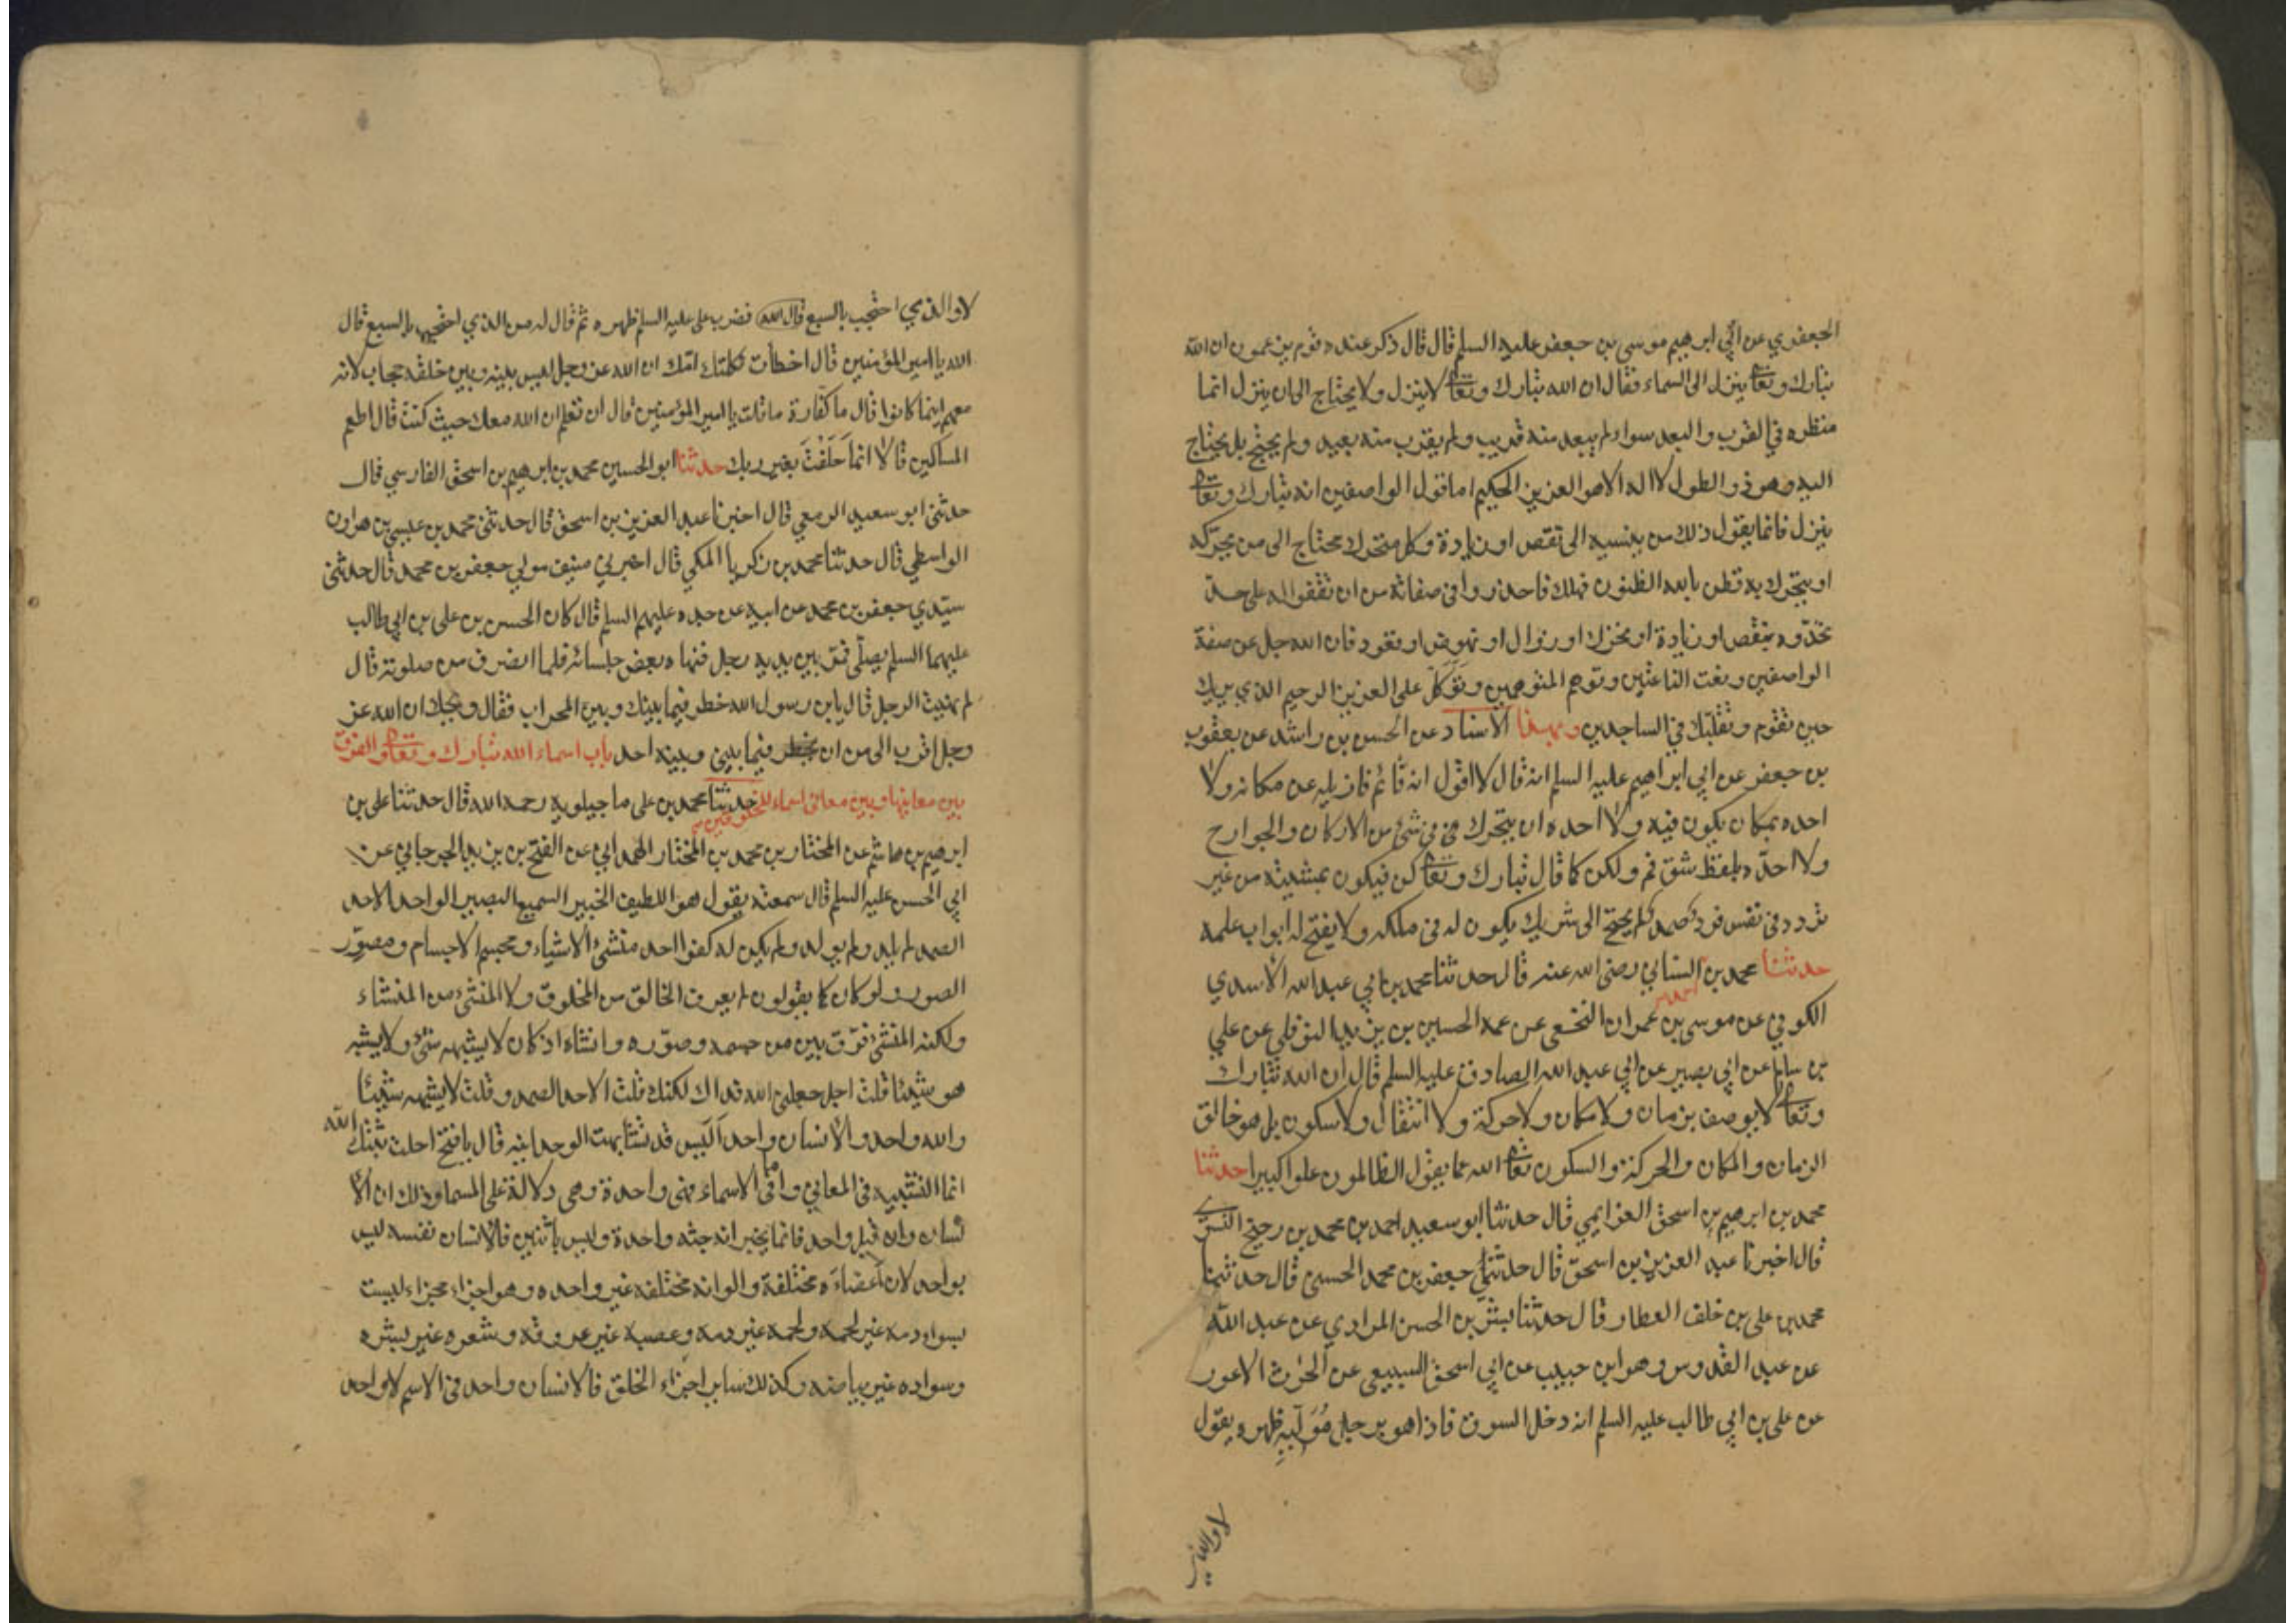 الجعفري عن أبي ابرهيم موسى بن جعفر عليه السلم قال قال ذكر عنده قوم يزعمون ان الله
تبارك وتعا ينزل الى السماء فقال ان الله تبارك وتعا لا ينزل ولا يحتاج الى ان ينزل انما
منظره في القرب والبعد سواء لم يبعد منه قريب ولم يقرب منه بعيد ولم يحتج بل يحتاج
اليه وهو ذو الطول لا اله الا هو العزيز الحكيم اما قول الواصفين انه تبارك وتعا
ينزل فانما يقول ذلك من ينسبه الى نقص او زيادة وكل متحرك محتاج الى من يحركه
او يتحرك به فظن بالله الظنون فهلك فاحذروا في صفاته من ان تقفوا له على حد
تحدّوه بنقص او زيادة او تحرك او زوال او نهوض او قعود فان الله جل عن صفة
الواصفين ونعت الناعتين وتوهم المتوهمين وتَوَكّل على العزيز الرحيم الذي يريك
حين تقوم وتقلّبك في الساجدين وبهذا الاسناد عن الحسن بن راشد عن يعقوب
بن جعفر عن ابي ابراهيم عليه السلم انه قال لا اقول انه قائم فازيله عن مكانه ولا
احده بمكان يكون فيه ولا احده ان يتحرك في شئ من الاركان والجوارح
ولا احدّه بلفظ شق فم ولكن كما قال تبارك وتعا كن فيكون بمشيته من غير
تردد في نفس فرد صمد لم يحتج الى شريك يكون له في ملكه ولا يفتح له ابواب علمه
حدثنا محمد بن احمد السناني رضى الله عنه قال حدثنا محمد بن ابي عبد الله الاسدي
الكوفي عن موسى بن عمران النخعي عن عمه الحسين بن يزيد النوفلي عن علي
بن سالم عن ابي بصير عن ابي عبد الله الصادق عليه السلم قال ان الله تبارك
وتعا لا يوصف بزمان ولا مكان ولا حركة ولا انتقال ولا سكون بل هو خالق
الزمان والمكان والحركة والسكون تعا الله عما يقول الظالمون علوا كبيرا حدثنا
محمد بن ابرهيم بن اسحق العزايمي قال حدثنا ابو سعيد احمد بن محمد بن رميح النسوي
قال اخبرنا عبد العزيز بن اسحق قال حدثني جعفر بن محمد الحسني قال حدثنا
محمد بن على بن خلف العطار قال حدثنا بشر بن الحسن المرادي عن عبد الله
عن عبد القدوس وهو ابن حبيب عن ابي اسحق السبيعي عن الحرث الاعور
عن على بن ابي طالب عليه السلم انه دخل السوق فاذا هو برجل مُوَلّيه ظهره يقول
لا والذي
لا والذي احتجب بالسبع قال الله فضرب على عليه السلم ظهره ثم قال له من الذي احتجب بالسبع قال
الله يا امير المؤمنين قال اخطأت ثكلتك امّك ان الله عز وجل ليس بينه وبين خلقه حجاب لانه
معهم اينما كانوا قال ما كفارة ما قلت يا امير المؤمنين قال ان تعلم ان الله معك حيث كنت قال اطعم
المساكين قال لا انما حَلَفْتَ بغير ربك حدثنا ابو الحسين محمد بن ابرهيم بن اسحق الفارسي قال
حدثنى ابو سعيد الرمحي قال اخبرنا عبد العزيز بن اسحق قال حدثنى محمد بن عيسى بن هرون
الواسطي قال حدثنا محمد بن زكريا المكي قال اخبرني منيف مولي جعفر بن محمد قال حدثنى
سيّدي جعفر بن محمد عن ابيه عن جده عليهم السلم قال كان الحسن بن على بن ابي طالب
عليهما السلم يصلّى فمرّ بين يديه رجل فنهاه بعض جلسائه فلما انصرف من صلوته قال
لم نهيت الرجل قال يا بن رسول الله خطر فيما بينك وبين المحراب فقال ويحك ان الله عز
وجل اقرب الى من ان يخطر فيما بيني وبينه احد باب اسماء الله تبارك وتعا والفرق
بين معانيها وبين معانى اسماء المخلوقين حدثنا محمد بن على ماجيلويه رحمه الله قال حدثنا على بن
ابرهيم بن هاشم عن المختار بن محمد بن المختار الهمداني عن الفتح بن يزيد الجرجاني عن
ابي الحسن عليه السلم قال سمعته يقول هو اللطيف الخبير السميع البصير الواحد الاحد
الصمد لم يلد ولم يولد ولم يكن له كفوا احد منشئ الاشياء ومجسم الاجسام ومصوّر
الصور ولو كان كما يقولون لم يعرف الخالق من المخلوق ولا المنشئ من المنشاء
ولكنه المنشئ فرّق بين من جسمه وصوّره وانشاه اذ كان لا يشبهه شئ ولا يشبه
هو شيئا قلت اجل جعلنى الله فداك لكنك قلت الاحد الصمد وقلت لا يشبهه شيئا
والله واحد والانسان واحد اليس قد تشابهت الوحدانيه قال يا فتح احلت ثبتك الله
انما التشبيه في المعاني واما في الاسماء فهى واحدة وهى دلالة على المسما وذلك ان الا
نسان وان قيل واحد فانما يخبر انه جثه واحدة وليس باثنين فالانسان نفسه ليس
بواحد لان اعضاءَه مختلفة والوانه مختلفه غير واحده وهو اجزاء مجزاء ليست
بسواء دمه غير لحمه ولحمه غير دمه وعصبه غير عروقه وشعره غير بشره
وسواده غير بياضه وكذلك ساير اجزاء الخلق فالانسان واحد في الاسم لا واحد